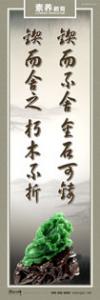 素养教育
锲而不舍 金石可镂
锲而舍之 朽木不折